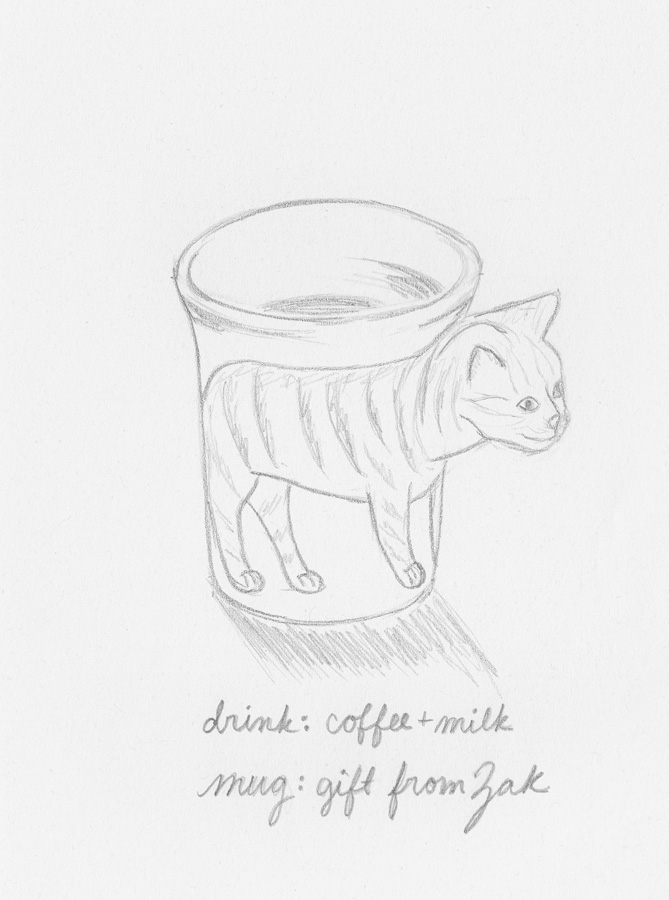 drink: coffee + milk
mug: gift from Zak